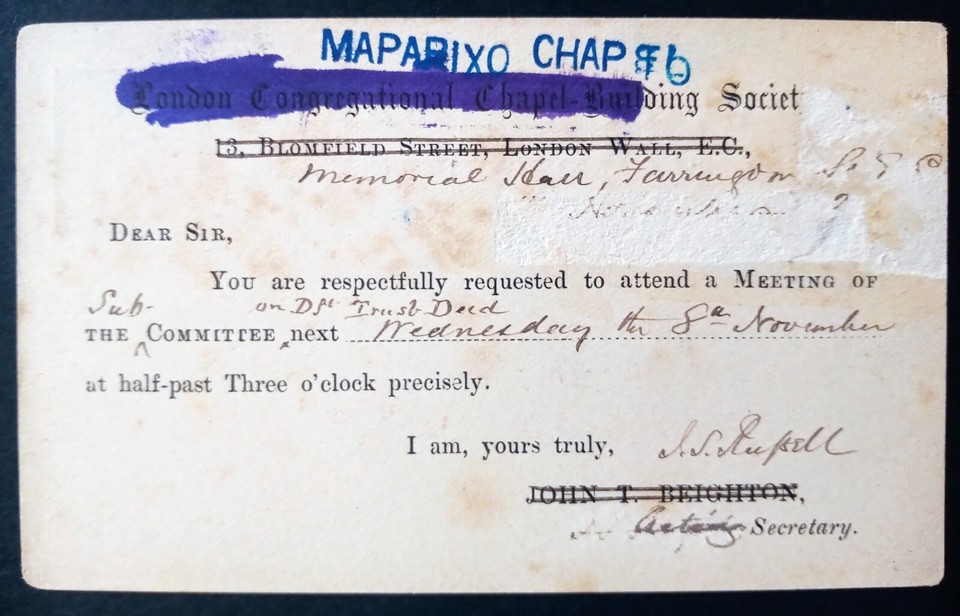 MAPARIXO CHAP
London Congregational Chapel-Building Societ
13, BLOMFIELD STREET, LONDON WALL, E.C.,
Memorial Hall, Farringdon St E C
DEAR SIR,
YOU are respectfully requested to attend a MEETING OF
Sub- on Dft Trust Deed
THE COMMITTEE next Wednesday the 8th November
at half-past Three o'clock precisely.
I am, yours truly, J. S. Russell
JOHN T. BEIGHTON,
Acting Secretary.